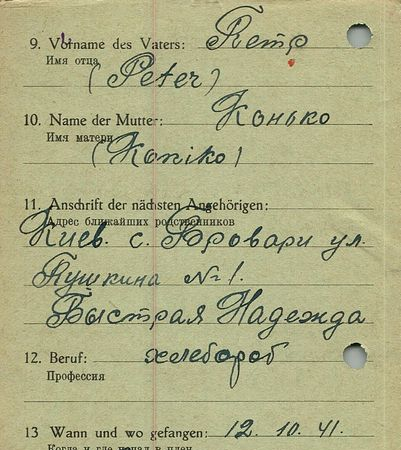 9. Vorname des Vaters: Петр
Имя отца
(Peter)
10. Name der Mutter: Конько
Имя матери
(Koniko)
11. Anschrift der nächsten Angehörigen:
Адрес ближайших родственников
Киев. с. Бровари ул.
Пушкина №1.
Быстрая Надежда
12. Beruf: хлебороб
Профессия
13 Wann und wo gefangen: 12. 10. 41.
Когда и где попал в плен